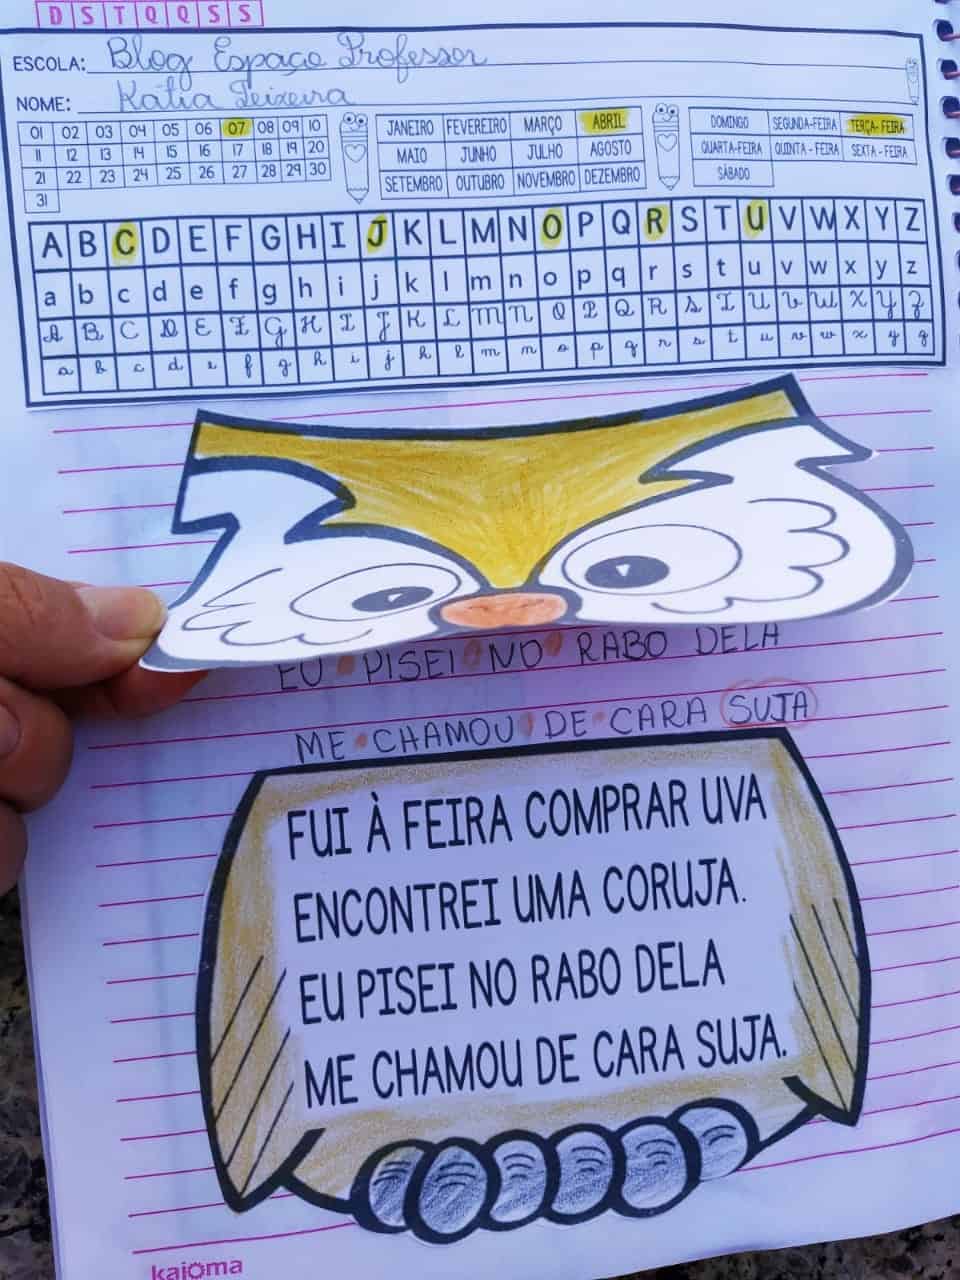 D S T Q Q S S
ESCOLA: Blog Espaço Professor
NOME: Kátia Teixeira
01 02 03 04 05 06 07 08 09 10
11 12 13 14 15 16 17 18 19 20
21 22 23 24 25 26 27 28 29 30
31
JANEIRO FEVEREIRO MARÇO ABRIL
MAIO JUNHO JULHO AGOSTO
SETEMBRO OUTUBRO NOVEMBRO DEZEMBRO
DOMINGO SEGUNDA-FEIRA TERÇA-FEIRA
QUARTA-FEIRA QUINTA-FEIRA SEXTA-FEIRA
SÁBADO
A B C D E F G H I J K L M N O P Q R S T U V W X Y Z
a b c d e f g h i j k l m n o p q r s t u v w x y z
A B C D E F G H I J K L M N O P Q R S T U V W X Y Z
a b c d e f g h i j k l m n o p q r s t u v w x y z
EU PISEI NO RABO DELA
ME CHAMOU DE CARA SUJA
FUI À FEIRA COMPRAR UVA
ENCONTREI UMA CORUJA.
EU PISEI NO RABO DELA
ME CHAMOU DE CARA SUJA.
kajoma